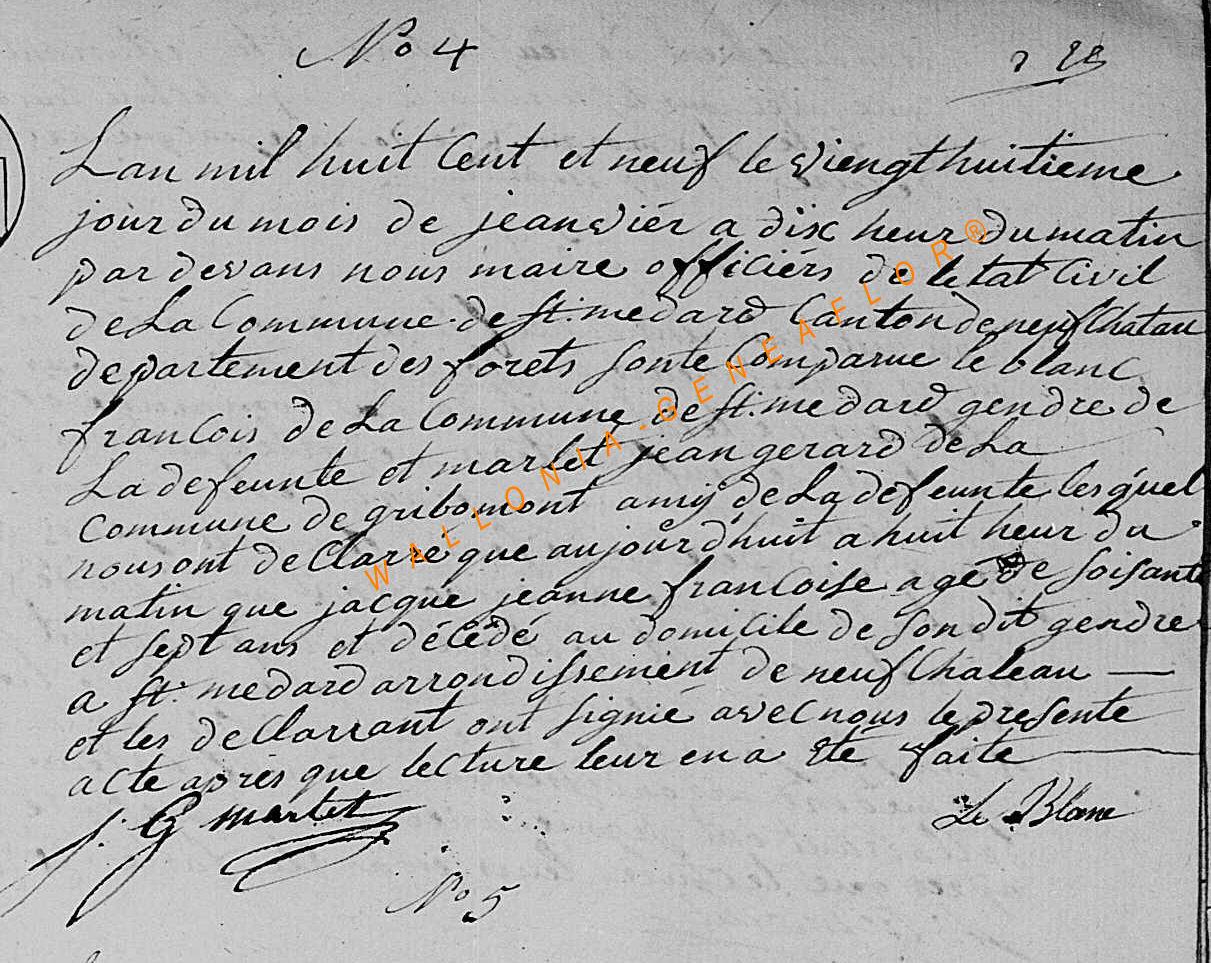 No 4
28
Lan mil huit Cent et neuf le viengthuitieme
jour du mois de jeanviér a dix heur du matin
par devans nous maire officiérs de letat Civil
de La Commune de St: medard Canton de neufChatau
departement des forets sonte Comparue le blanc
francois de La Commune de St: medard gendre de
La defeunte et marlet jean gerard de La
Commune de gribomont amij de La defeunte lesquel
nous ont de Clarré que aujourdhuit a huit heur du
matin que jacque jeanne francoise agé de soisante
et sept ans et décédé au domicile de son dit gendre
a St: medard arrondissement de neufChateau —
et les deClarrant ont signié avec nous le presente
acte aprés que lecture leur en a été faite
J. G marlet
Le Blanc
No 5
WALLONIA-GENEAFLOR®